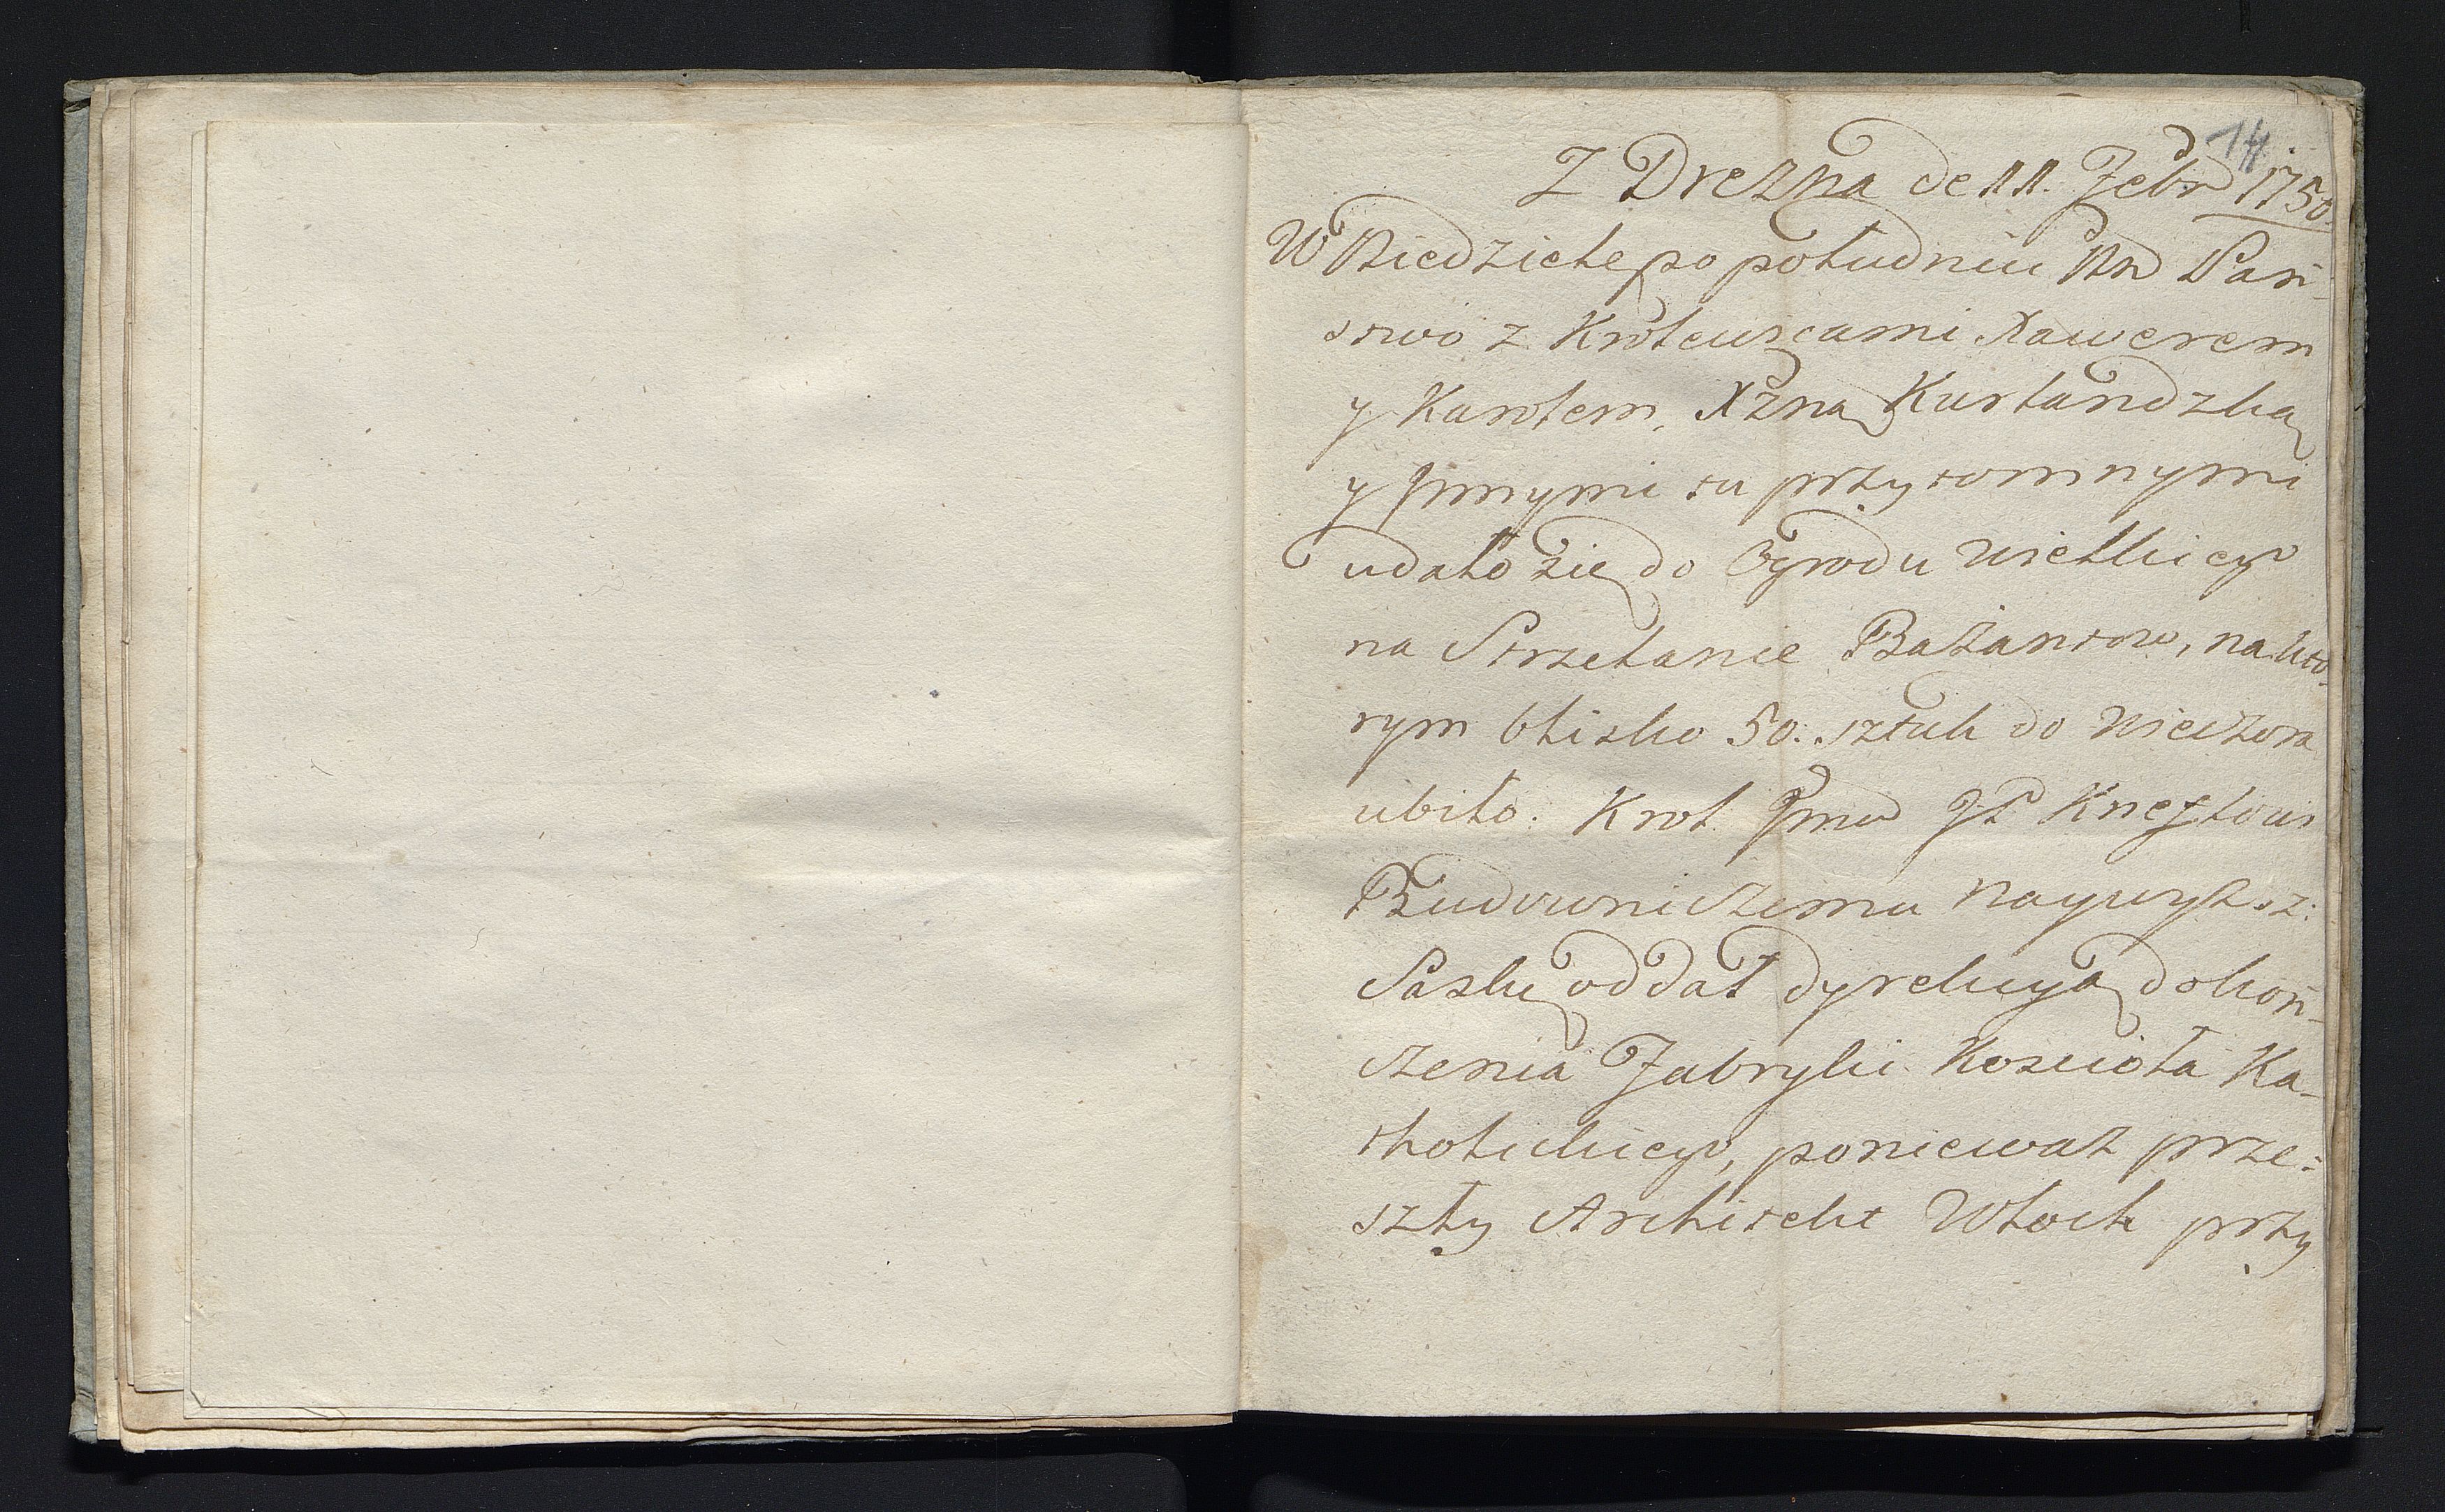 14
Z Drezna de 11. Febr 1750.
W Niedziele po południu NN Pań-
stwo z Krolewicami Xawerem
y Karolem, Xżną Kurlandzką
y Jnnymi tu przytomnymi
udało się do Ogrodu Wielkiego
na Strzelanie Bażantow, na kto-
rym blisko 50. sztuk do Wieczora
ubito. Krol Jmć JP Kneflowi
Budowniczemu naywyższ:
Saską oddał dyrekcyą dokoń-
czenia Fabryki Kościoła Ka-
tholickiego, ponieważ prze-
szły Architekt Włoch przy